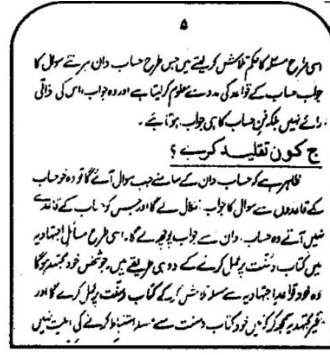 ۵
اسی طرح مسئلہ کا حکم تلاش کر لیتے ہیں جس طرح حساب دان ہر نئے سوال کا
جواب حساب کے قواعد کی مدد سے معلوم کر لیتا ہے اور وہ جواب، اس کی ذاتی
رائے نہیں بلکہ فن حساب کا ہی جواب ہوتا ہے۔
ج کون تقلید کرے ؟
ظاہر ہے کہ حساب دان کے سامنے جب سوال آئے گا تو وہ خود حساب
کے قاعدوں سے سوال کا جواب نکال لے گا اور جس کو حساب کے قاعدے
نہیں آتے وہ حساب دان سے جواب پوچھ لے گا۔ اسی طرح مسائل اجتہادیہ
میں کتاب و سنت پر عمل کرنے کے دو ہی طریقے ہیں۔ جو شخص خود مجتہد ہو گا
وہ خود قواعد اجتہادیہ سے مسئلہ تلاش کر کے کتاب و سنت پر عمل کرے گا اور
غیر مجتہد یہ سمجھ کر کہ میں خود کتاب و سنت سے مسئلہ استنباط کرنے کی اہلیت نہیں